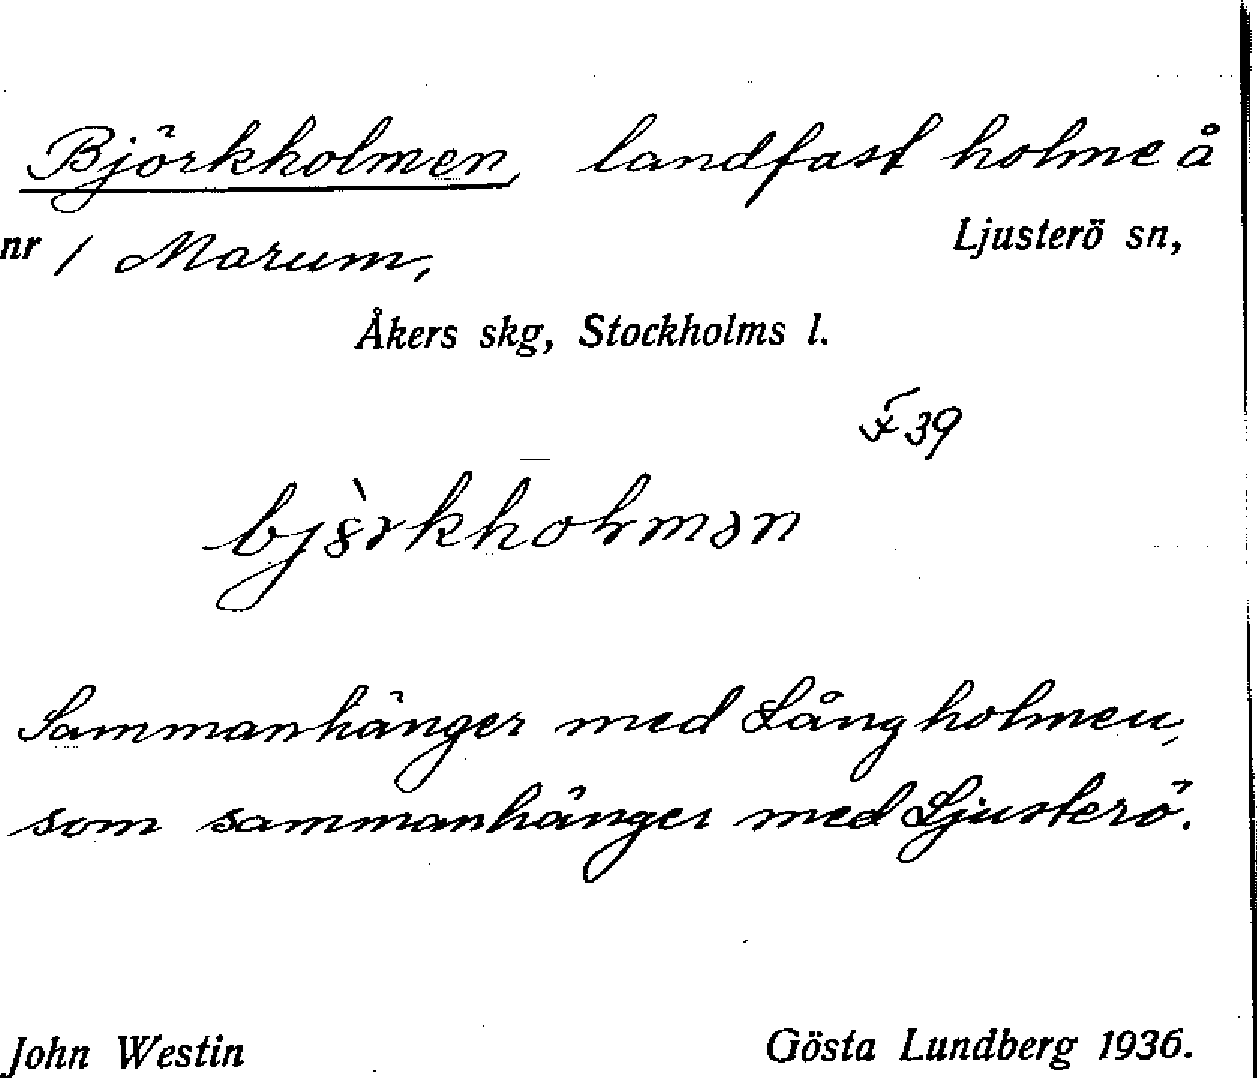 Björkholmen, landfast holme å
nr 1 Marum, Ljusterö sn,
Åkers skg, Stockholms l.
F 39
Sammanhänger med Långholmen,
som sammanhänger med Ljusterö.
John Westin Gösta Lundberg 1936.